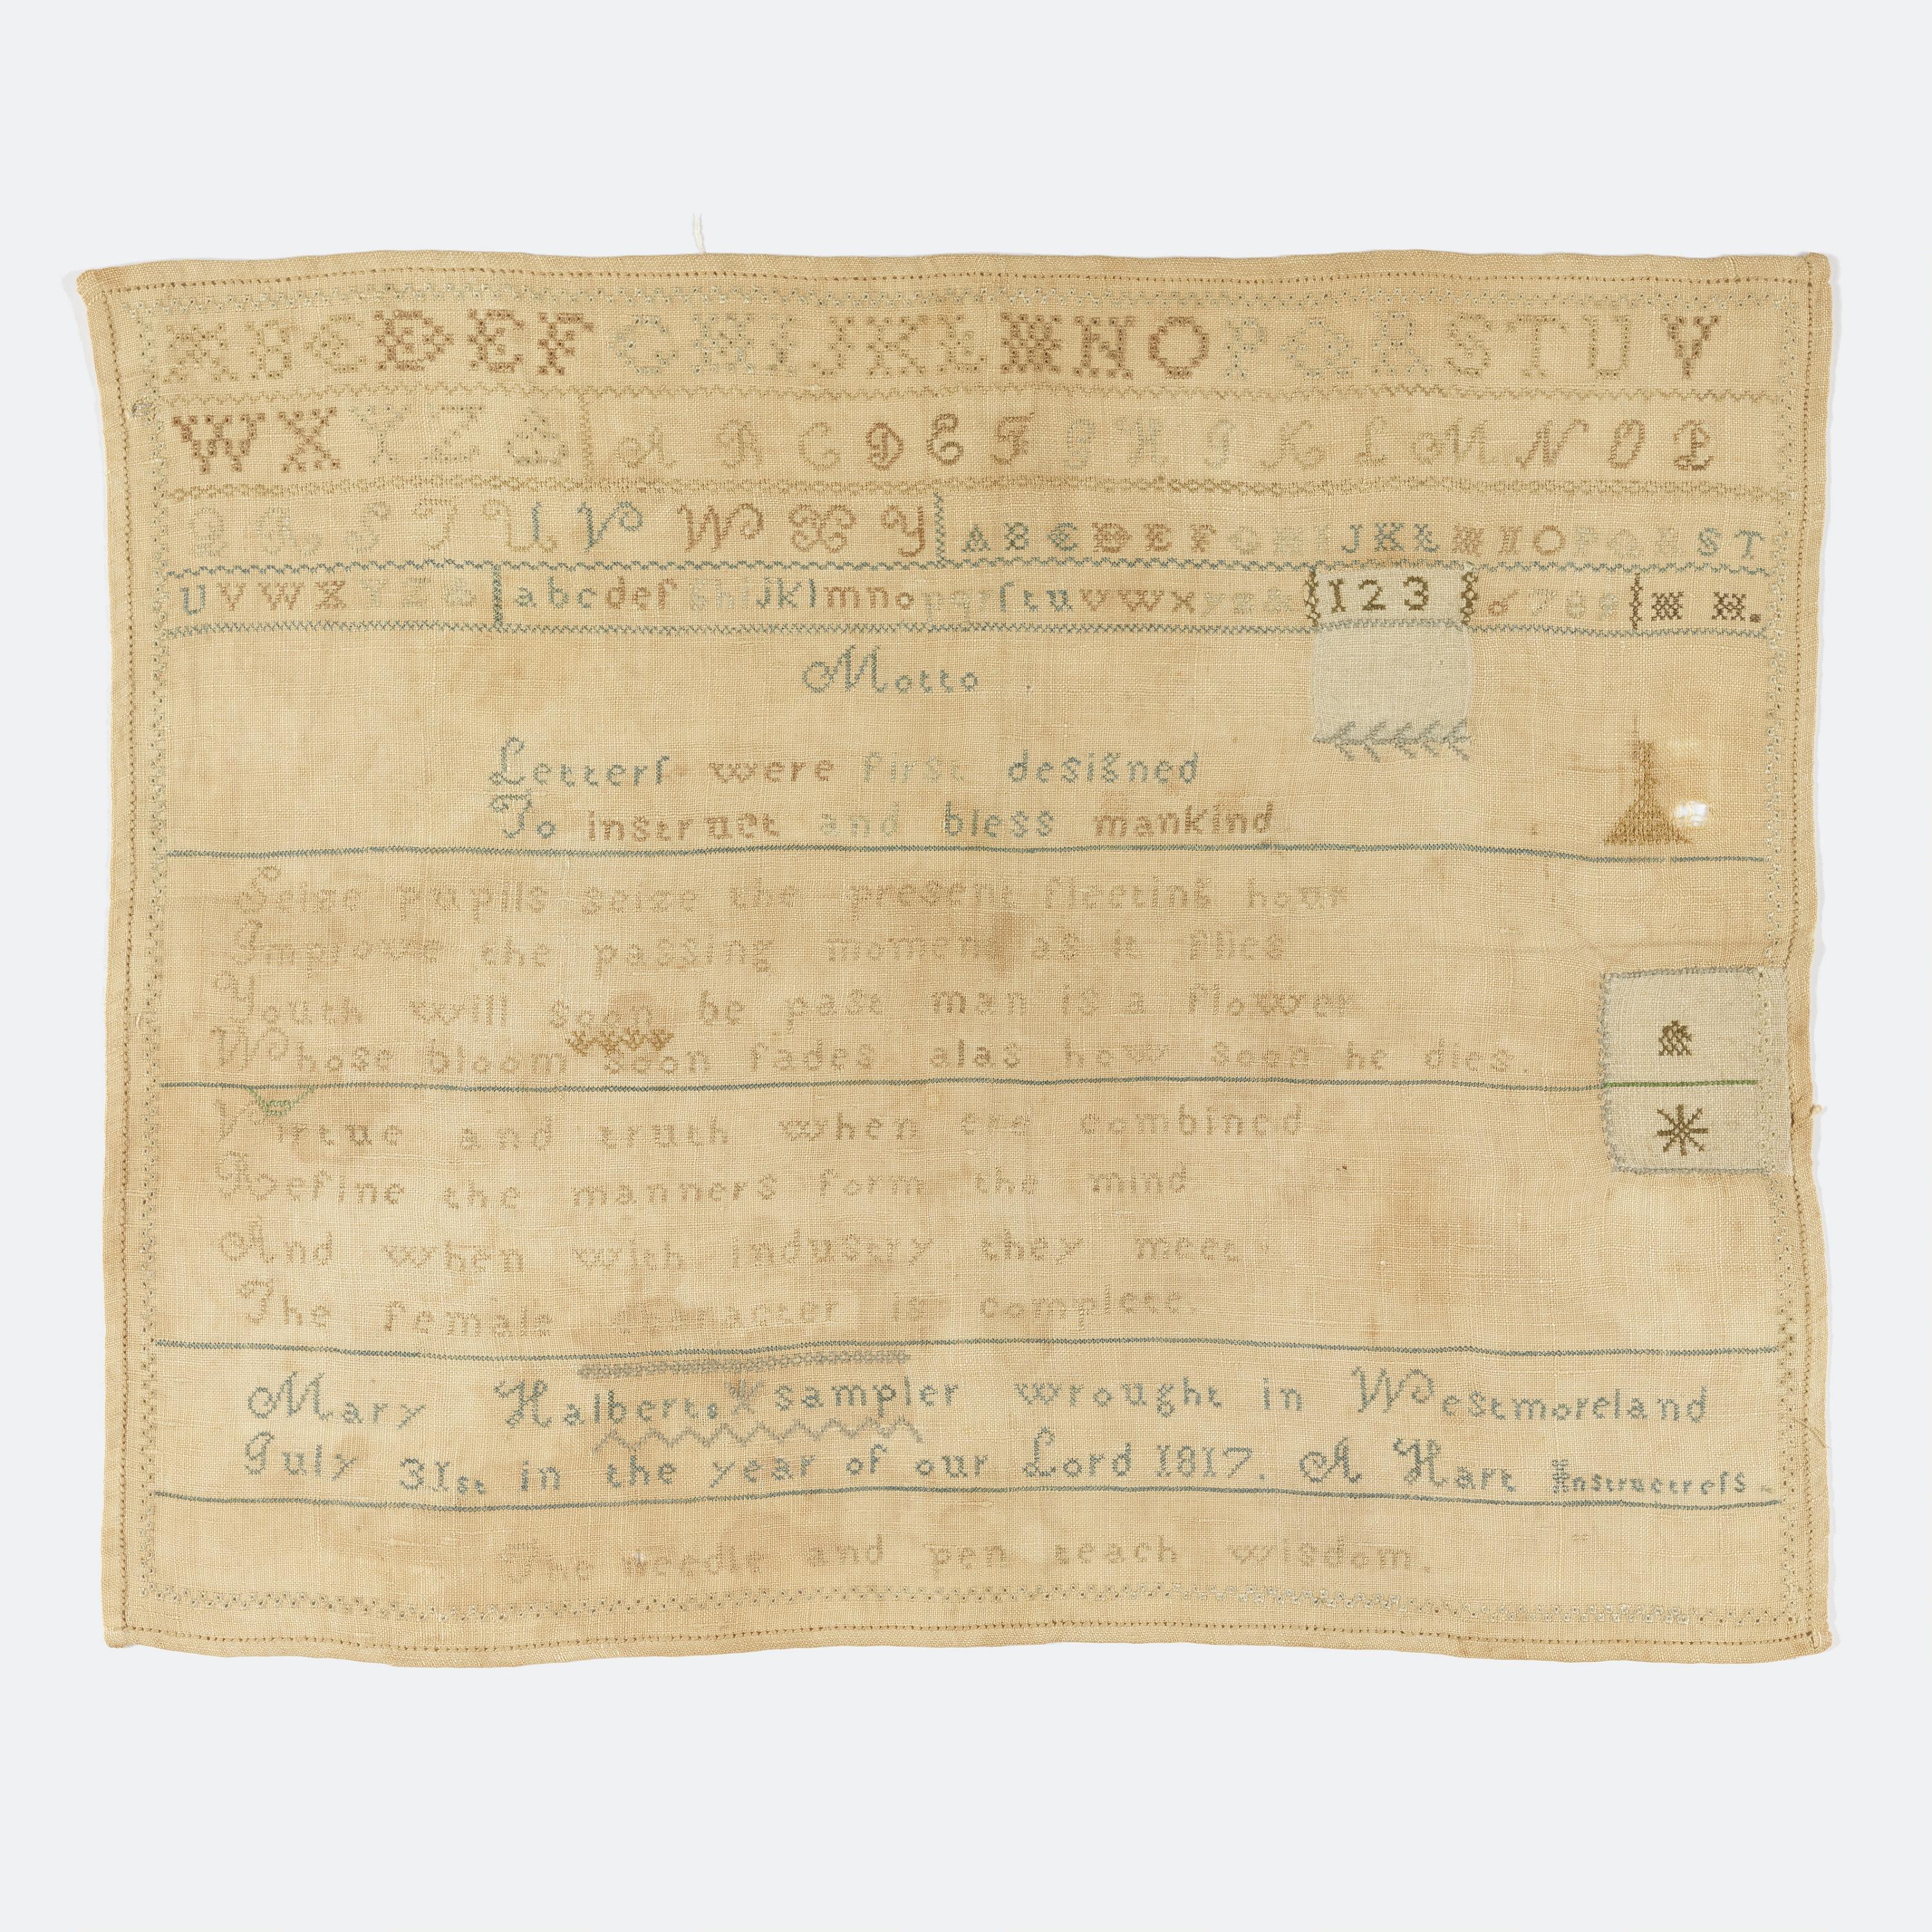 A B C D E F G H I J K L M N O P Q R S T U V
W X Y Z & A B C D E F G H I K L M N O P
Q R S T U V W X Y A B C D E F G H I J K L M N O P Q R S T
U V W X Y Z & a b c d e f g h i j k l m n o p q r ſ t u v w x y z & 1 2 3 6 7 8 9
Motto
Letterſ were first designed
To instruct and bless mankind
Seize pupils seize the present fleeting hour
Improve the passing moment as it flies
Youth will soon be past man is a flower
Whose bloom soon fades alas how soon he dies.
Virtue and truth when ere combined
Refine the manners form the mind
And when with industry they meet
The female character is complete.
Mary Halberts sampler wrought in Westmoreland
July 31st in the year of our Lord 1817. A Hart Instructreſs.
The needle and pen teach wisdom.